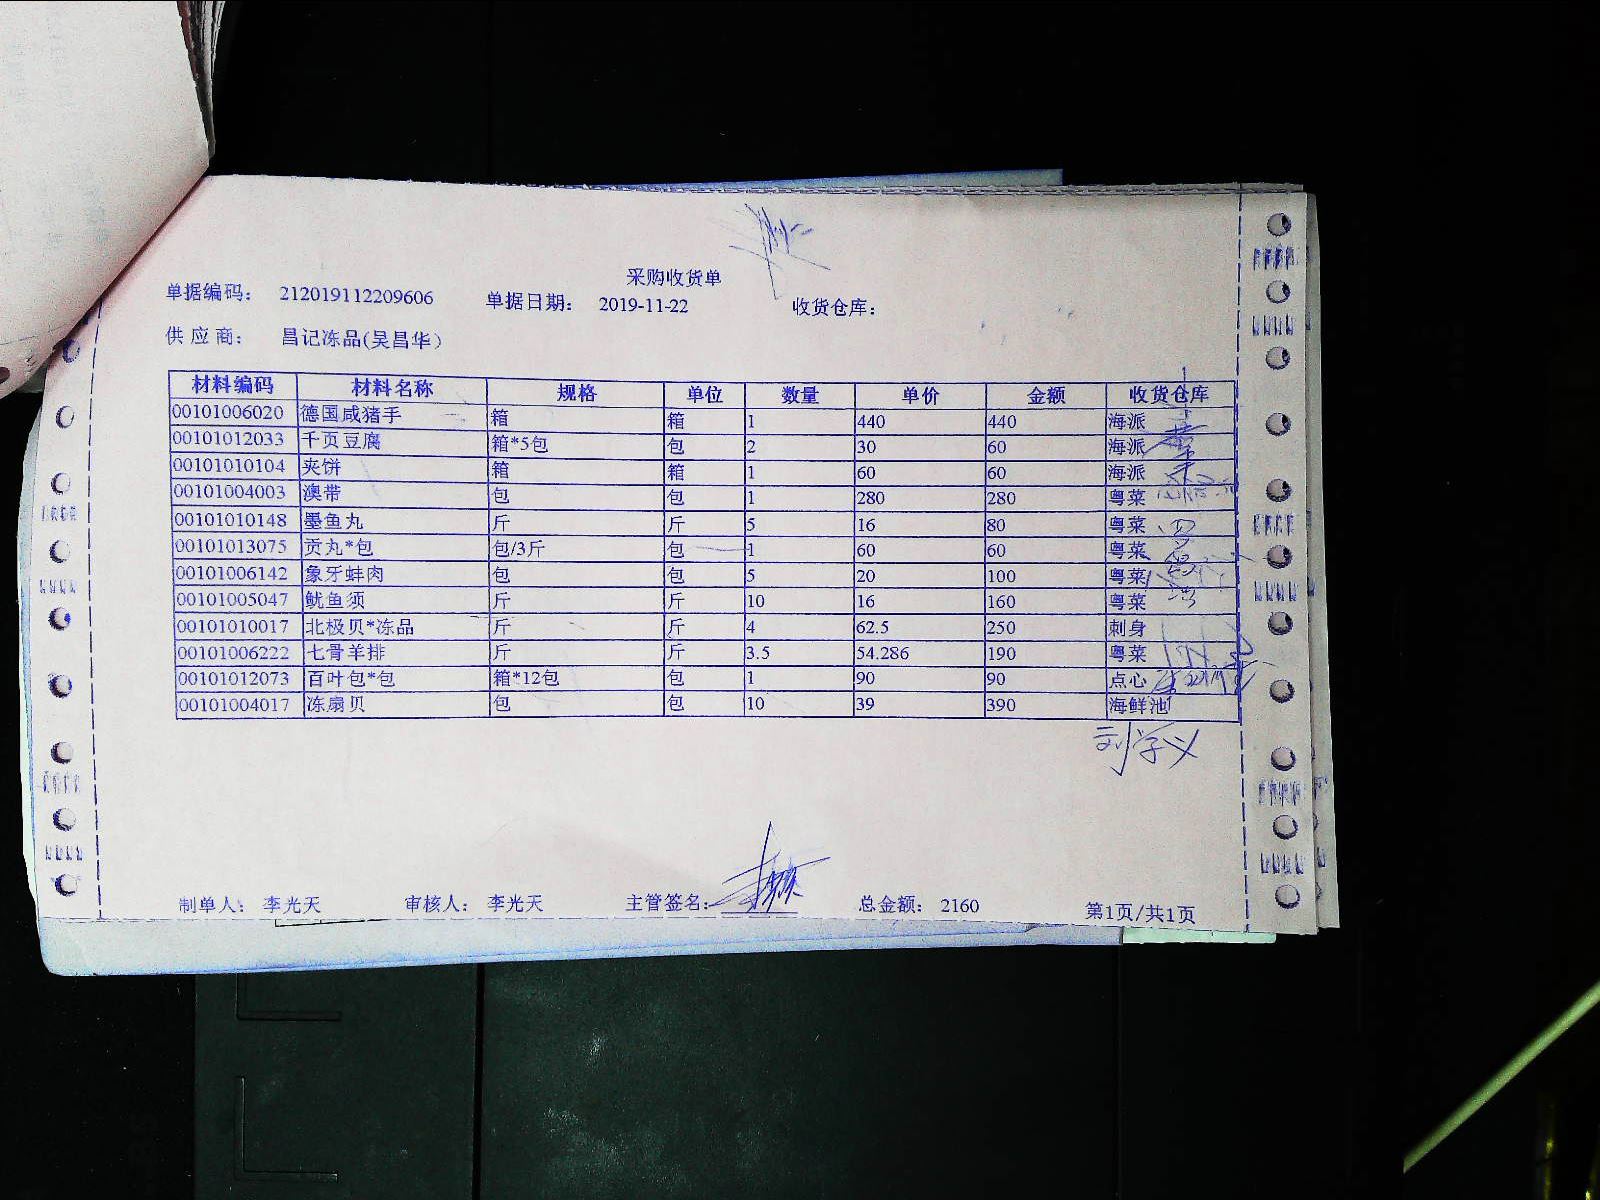 采购收货单
单据编码： 212019112209606 单据日期： 2019-11-22 收货仓库：
供 应 商： 昌记冻品(吴昌华)
材料编码 材料名称 规格 单位 数量 单价 金额 收货仓库
00101006020 德国咸猪手 箱 箱 1 440 440 海派
00101012033 千页豆腐 箱*5包 包 2 30 60 海派
00101010104 夹饼 箱 箱 1 60 60 海派
00101004003 澳带 包 包 1 280 280 粤菜
00101010148 墨鱼丸 斤 斤 5 16 80 粤菜
00101013075 贡丸*包 包/3斤 包 1 60 60 粤菜
00101006142 象牙蚌肉 包 包 5 20 100 粤菜
00101005047 鱿鱼须 斤 斤 10 16 160 粤菜
00101010017 北极贝*冻品 斤 斤 4 62.5 250 刺身
00101006222 七骨羊排 斤 斤 3.5 54.286 190 粤菜
00101012073 百叶包*包 箱*12包 包 1 90 90 点心
00101004017 冻扇贝 包 包 10 39 390 海鲜池
刘学义
制单人： 李光天 审核人： 李光天 主管签名： 总金额： 2160 第1页/共1页